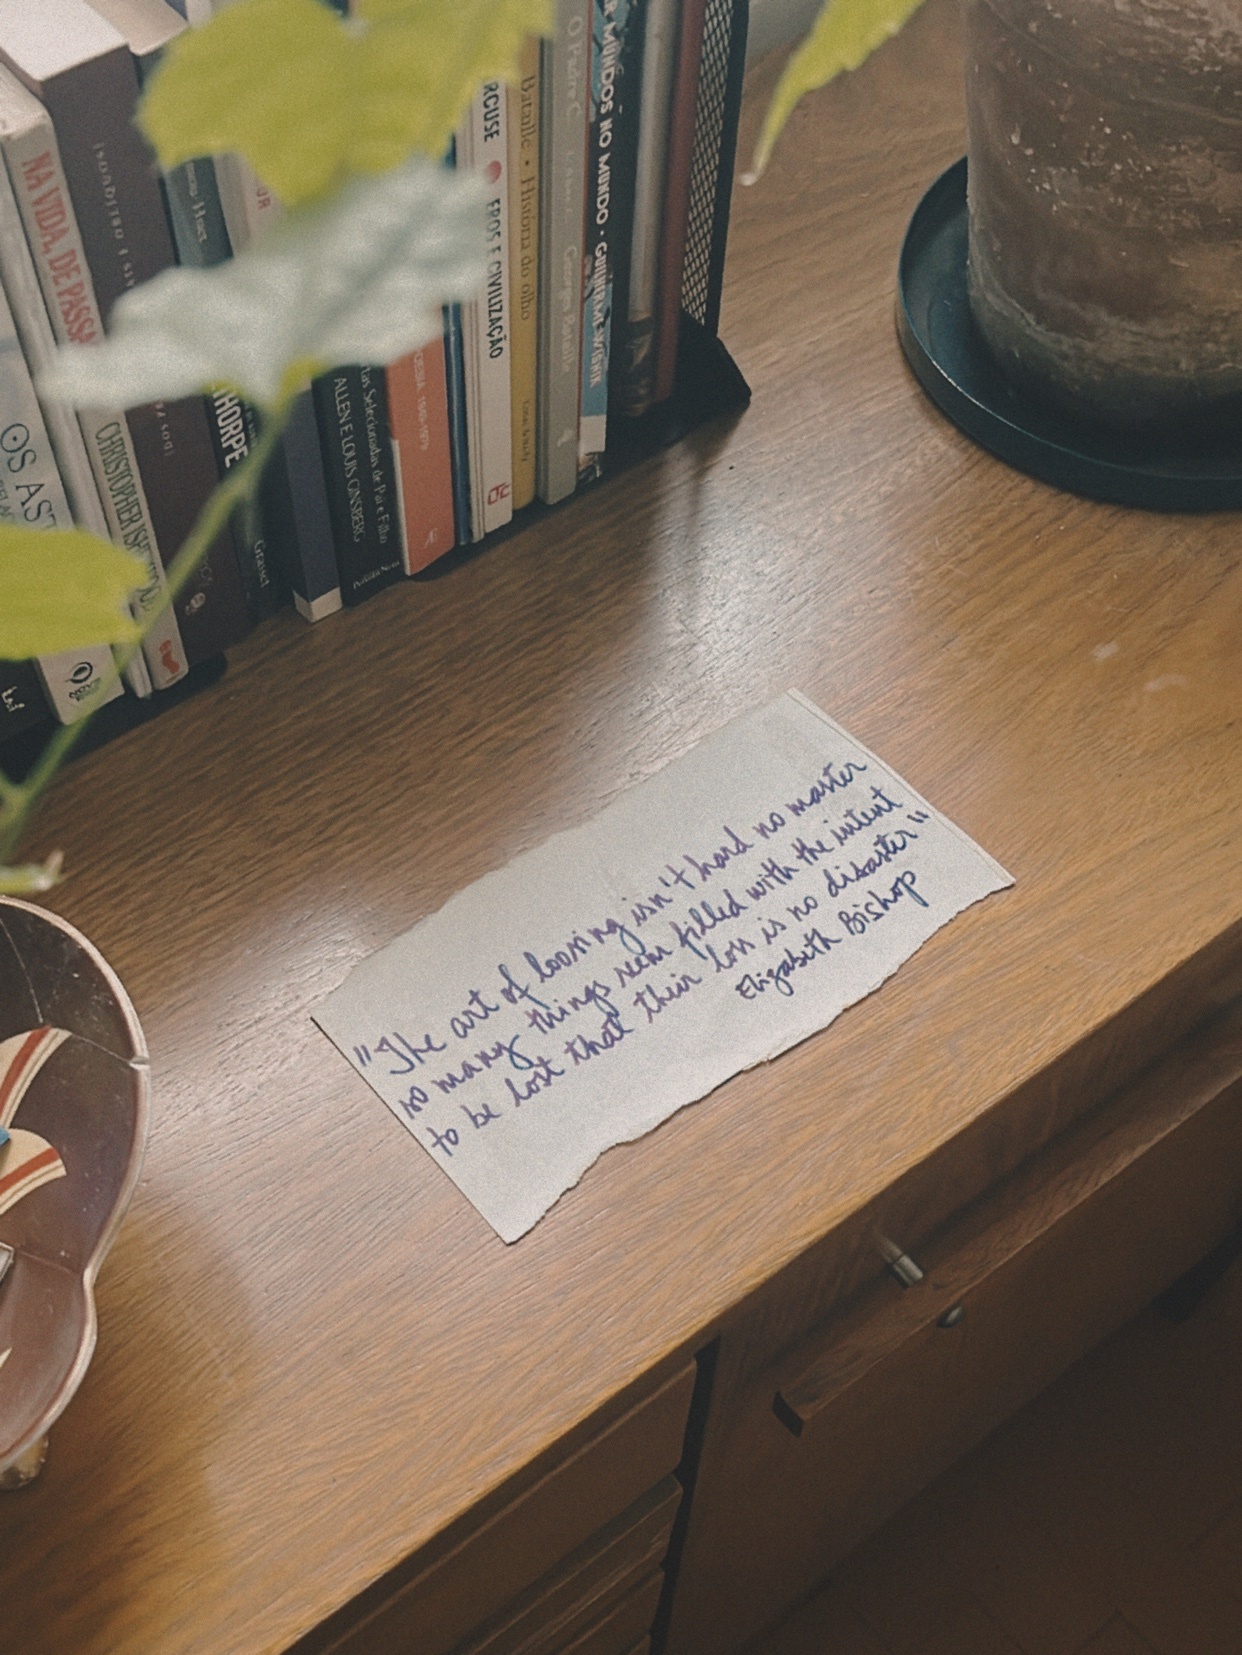 NA VIDA, DE
OS
CHRISTOPHER
Grasset
ALLEN E LOUIS GINSBERG
Selecionadas de Pai e Filho
EROS E CIVILIZAÇÃO
Bataille • História do olho
O Padre C.
MUNDOS NO MUNDO · GUILHERME WISNIK
"The art of loosing isn't hard no master
so many things seem filled with the intent
to be lost that their loss is no disaster"
Elizabeth Bishop